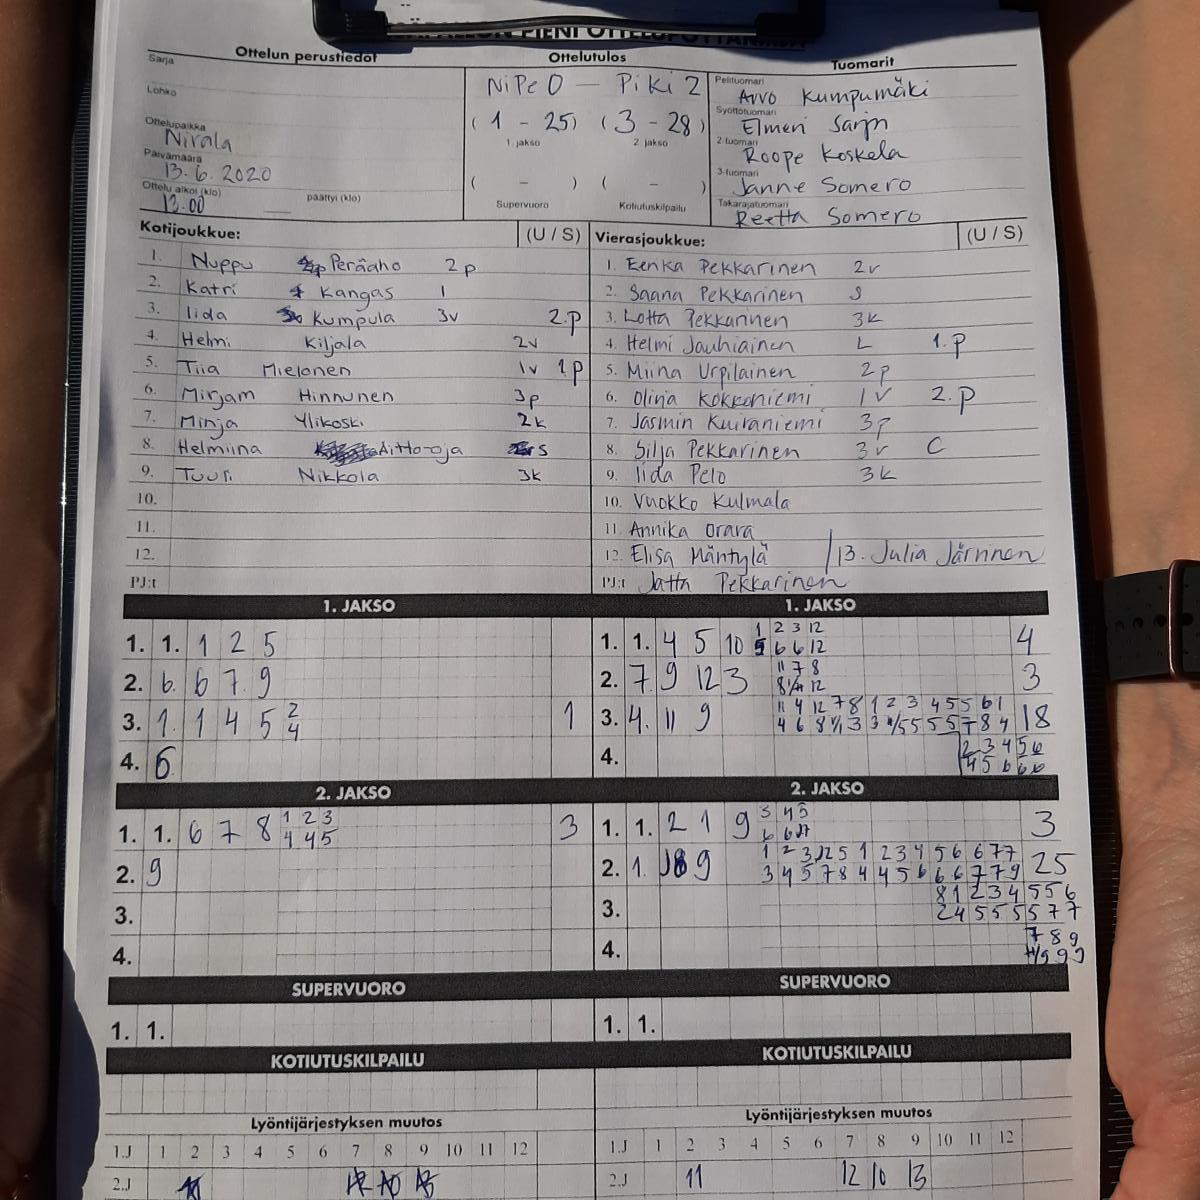 Ottelun perustiedot
Ottelutulos
Tuomarit
Sarja
Lohko
Ottelupaikka
Nirala
Päivämäärä
13.6.2020
Ottelu alkoi (klo) päättyi (klo)
13.00
NiPe 0 — PiKi 2
(1 - 25) (3 - 28)
1. jakso 2. jakso
( - ) ( - )
Supervuoro Kotiutuskilpailu
Pelituomari
Arvo Kumpumäki
Syöttötuomari
Elmeri
2-tuomari
Roope Koskela
3-tuomari
Janne Somero
Takarajatuomari
Reetta Somero
Kotijoukkue: (U / S)
1. Nuppu Peräaho 2p
2. Katri Kangas 1
3. Iida Kumpula 3v 2.p
4. Helmi Kiljala 2v
5. Tiia Mielonen 1v 1p
6. Mirjam Hinnunen 3p
7. Minja Ylikoski 2k
8. Helmiina Aitto-oja s
9. Tuuli Nikkola 3k
10.
11.
12.
PJ:t
Vierasjoukkue: (U / S)
1. Eerika Pekkarinen 2v
2. Saana Pekkarinen S
3. Lotta Pekkarinen 3k
4. Helmi Jauhiainen L 1.p
5. Miina Urpilainen 2p
6. Olivia Kokkoniemi 1v 2.p
7. Jasmin Kuiraniemi 3p
8. Silja Pekkarinen 3v C
9. Iida Pelo 3k
10. Vuokko Kulmala
11. Annika Orara
12. Elisa Mäntylä /13. Julia Järvinen
PJ:t Jatta Pekkarinen
1. JAKSO
1. 1. 1 2 5
2. 6. 6 7. 9
3. 1. 1 4 5 2 1
4
4. 6
1. JAKSO
1 2 3 12
1. 1. 4 5 10 5 6 6 12 4
11 7 8
2. 7. 9 12 3 3
11 4 12 7 8 1 2 3 4 5 5 6 1
3. 4. 11 9 18
2 3 4 5 6
4. 4 5 6 6 6
2. JAKSO
1 2 3
1. 1. 6 7 8 4 4 5 3
2. 9
3.
4.
2. JAKSO
3 4 5
1. 1. 2 1 9 3
1 2 3 12 5 1 2 3 4 5 6 6 7 7
2. 1. 9 3 4 5 7 8 4 4 5 6 6 6 7 7 9 25
8 1 2 3 4 5 5 6
3. 2 4 5 5 5 5 7 7
7 8 9
4.
SUPERVUORO
1. 1.
SUPERVUORO
1. 1.
KOTIUTUSKILPAILU
KOTIUTUSKILPAILU
Lyöntijärjestyksen muutos
1.J 1 2 3 4 5 6 7 8 9 10 11 12
2.J
Lyöntijärjestyksen muutos
1.J 1 2 3 4 5 6 7 8 9 10 11 12
2.J 11 12 10 13